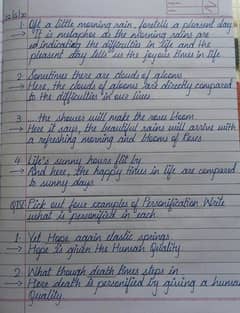 1. Oft a little morning rain, foretells a pleasant day
→ It is metaphor as the morning rains are
indicating the difficulties in life and the
pleasant day tells us the joyous times in life
2. Sometimes there are clouds of gloom
→ Here, the clouds of glooms are directly compared
to the difficulties in our lives
3. ... the shower will make the roses bloom
→ Here it says, the beautiful rains will arrive with
a refreshing morning and blooms of Roses
4. Life's sunny hours flit by
→ And here, the happy times in life are compared
to sunny days
Pick out four examples of Personification. Write
what is personified in each
1. Yet Hope again elastic springs
→ Hope is given the Human Quality
2. What though death times steps in
→ Here death is personified by giving a human
Quality